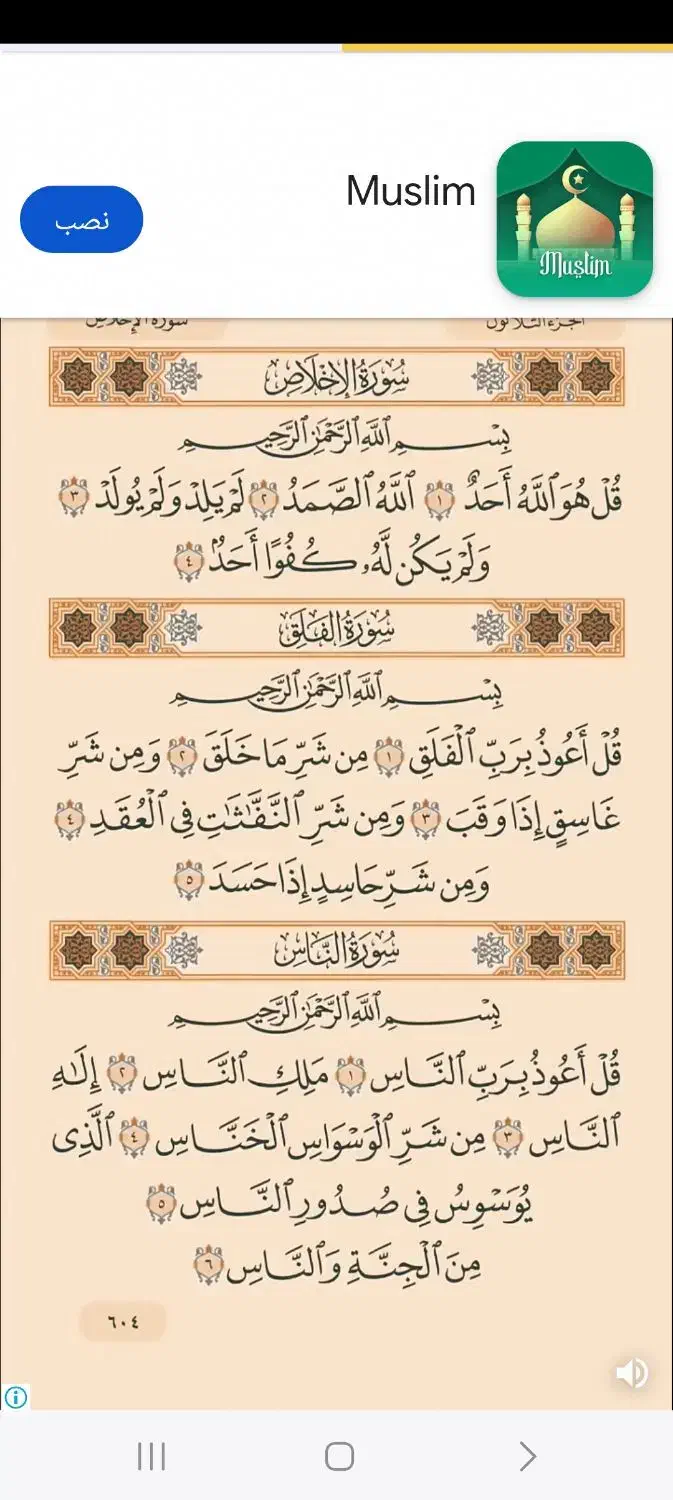 Muslim
نصب
Muslim
الجزء الثلاثون
سورة الإخلاص
سُورَةُ الإِخْلَاصِ
بِسْمِ ٱللَّهِ ٱلرَّحْمَٰنِ ٱلرَّحِيمِ
قُلْ هُوَ ٱللَّهُ أَحَدٌ ١ ٱللَّهُ ٱلصَّمَدُ ٢ لَمْ يَلِدْ وَلَمْ يُولَدْ ٣
وَلَمْ يَكُن لَّهُۥ كُفُوًا أَحَدٌۢ ٤
سُورَةُ الفَلَقِ
بِسْمِ ٱللَّهِ ٱلرَّحْمَٰنِ ٱلرَّحِيمِ
قُلْ أَعُوذُ بِرَبِّ ٱلْفَلَقِ ١ مِن شَرِّ مَا خَلَقَ ٢ وَمِن شَرِّ
غَاسِقٍ إِذَا وَقَبَ ٣ وَمِن شَرِّ ٱلنَّفَّٰثَٰتِ فِى ٱلْعُقَدِ ٤
وَمِن شَرِّ حَاسِدٍ إِذَا حَسَدَ ٥
سُورَةُ النَّاسِ
بِسْمِ ٱللَّهِ ٱلرَّحْمَٰنِ ٱلرَّحِيمِ
قُلْ أَعُوذُ بِرَبِّ ٱلنَّاسِ ١ مَلِكِ ٱلنَّاسِ ٢ إِلَٰهِ
ٱلنَّاسِ ٣ مِن شَرِّ ٱلْوَسْوَاسِ ٱلْخَنَّاسِ ٤ ٱلَّذِى
يُوَسْوِسُ فِى صُدُورِ ٱلنَّاسِ ٥
مِنَ ٱلْجِنَّةِ وَٱلنَّاسِ ٦
٦٠٤